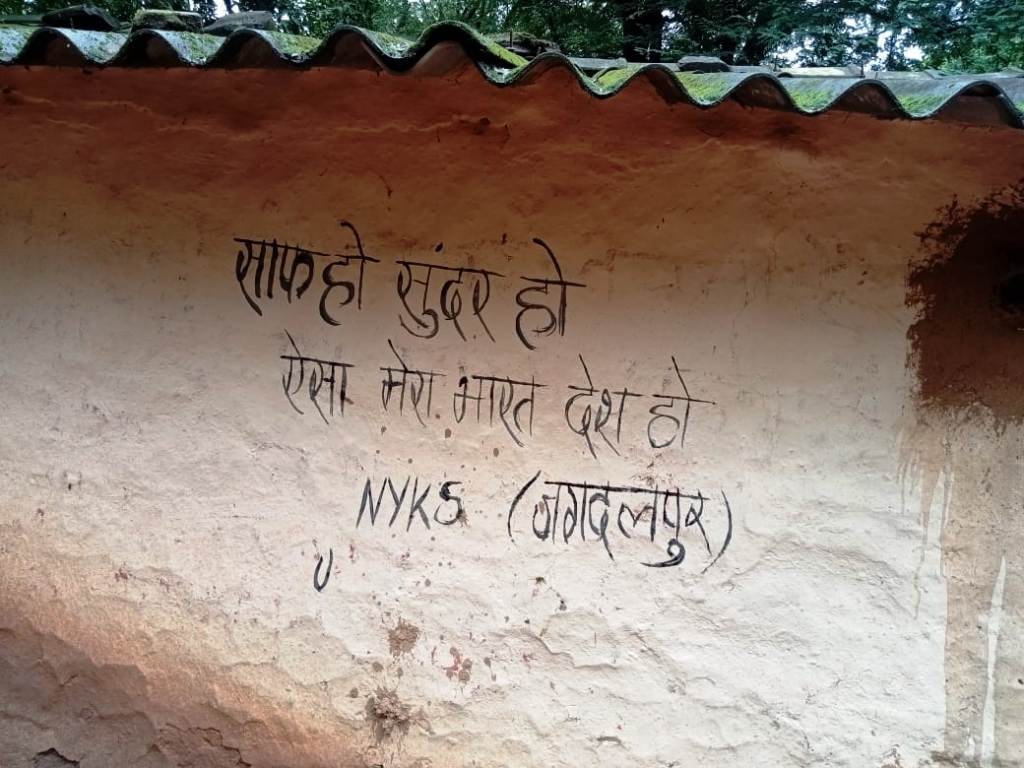 साफ हो सुंदर हो
ऐसा मेरा भारत देश हो
NYKS (जगदलपुर)